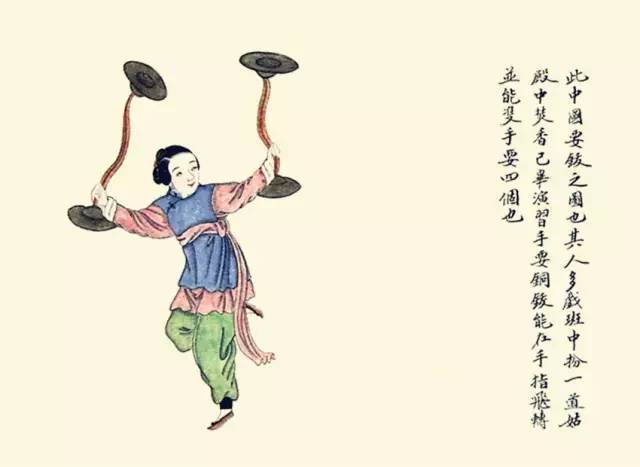 此中國耍鈸之圖也其人多戲班中扮一道姑
殿中焚香已畢演習手耍銅鈸能在手指飛轉
並能雙手耍四個也